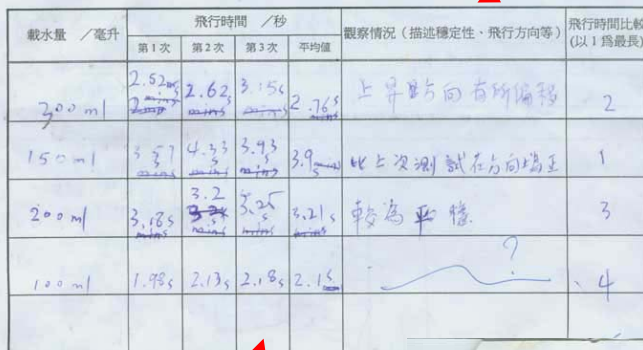 載水量 ／毫升
飛行時間 ／秒
第1次 第2次 第3次 平均值
觀察情況（描述穩定性、飛行方向等）
飛行時間比較
(以1為最長)
300ml 2.52 2.62 3.15s 2.76s 上昇 方向有所偏移 2
150ml 3.57 4.33 3.93 3.9 比上次測試在方向 正 1
200ml 3.18s 3.2 3.25 3.21s 較為平穩 3
100ml 1.98s 2.13s 2.18s 2.1s ? 4